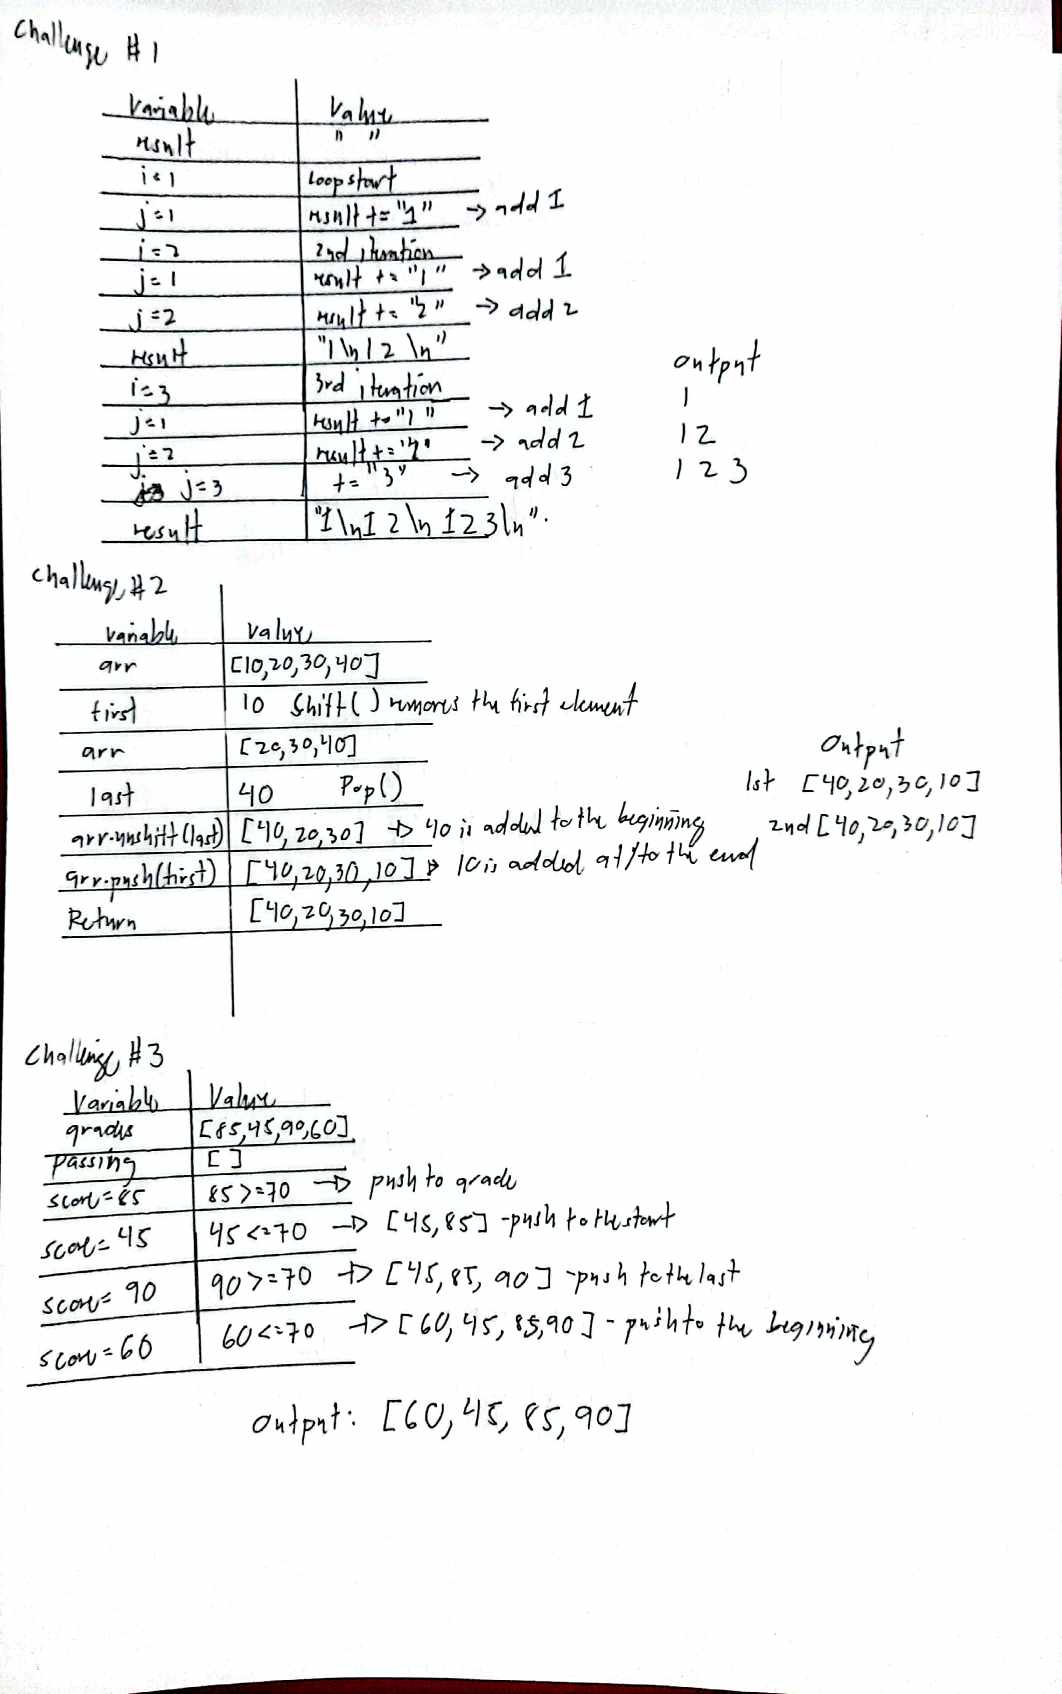 Challenge #1
Variable Value
result " "
i=1 Loop start
j=1 result += "1" → add 1
i=2 2nd iteration
j=1 result += "1" → add 1
j=2 result += "2" → add 2
result "1\n12\n"
i=3 3rd iteration
j=1 result += "1" → add 1
j=2 result += "2" → add 2
j=3 += "3" → add 3
result "1\n12\n123\n".
Output
1
12
123
Challenge #2
Variable Value
arr [10,20,30,40]
first 10 Shift() removes the first element
arr [20,30,40]
last 40 Pop()
arr.unshift(last) [40,20,30] → 40 is added to the beginning
arr.push(first) [40,20,30,10] → 10 is added at/to the end
Return [40,20,30,10]
Output
1st [40,20,30,10]
2nd [40,20,30,10]
Challenge #3
Variable Value
grades [85,45,90,60]
passing []
score=85 85>=70 → push to grade
score=45 45<=70 → [45,85] -push to the start
score=90 90>=70 → [45,85,90] -push to the last
score=60 60<=70 → [60,45,85,90] - push to the beginning
Output: [60,45,85,90]